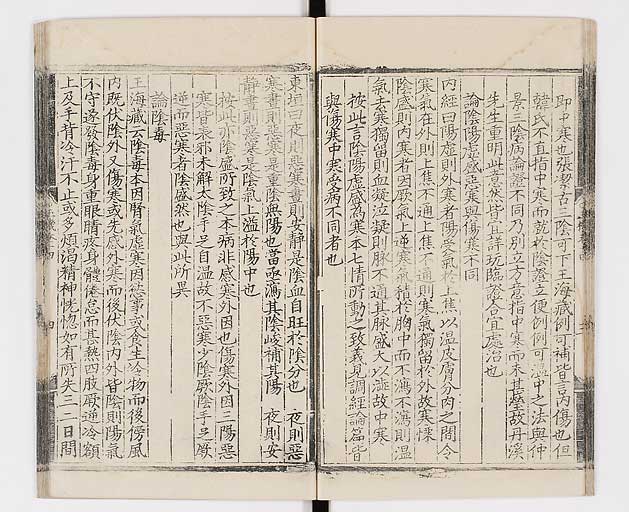 即中寒也張潔古三陰可下王海藏例可補皆言內傷也但
韓氏不直指中寒而就於陰證立便例例可溫中之法與仲
景三陰病論證不同乃別立方意指中寒而未甚瑩故丹溪
先生重明此意然皆宜詳玩臨證合宜處治也
論陰陽虛盛惡寒與傷寒不同
內經曰陽虛則外寒者陽受氣於上焦以溫皮膚分肉之間令
寒氣在外則上焦不通上焦不通則寒氣獨留於外故寒慄
陰盛則內寒者因厥氣上逆寒氣積於胸中而不瀉不瀉則溫
氣去寒獨留則血凝泣凝則脉不通其脉盛大以濇故中寒
按此言陰陽虛盛為寒本七情所動之致義見調經論篇皆
與傷寒中寒受病不同者也
東垣曰夜則惡寒晝則安靜是陰血自旺於陰分也 夜則惡
寒晝則惡寒是重陰無陽也當亟瀉其陰峻補其陽 夜則安
靜晝則惡寒是陰氣上溢於陽中也
按此亦陰盛所致之本病非感寒外因也傷寒外因三陽惡
寒皆表邪未解太陰手足自溫故不惡寒少陰厥陰手足厥
逆而惡寒者陰盛然也與此所異
論陰毒
王海藏云陰毒本因腎氣虛寒因慾事或食生冷物而後傷風
內既伏陰外又傷寒或先感外寒而後伏陰內外皆陰則陽氣
不守遂發陰毒身重眼睛疼身體倦怠而甚熱四肢厥逆冷額
上及手背冷汗不止或多煩渴精神恍惚如有所失三二日間